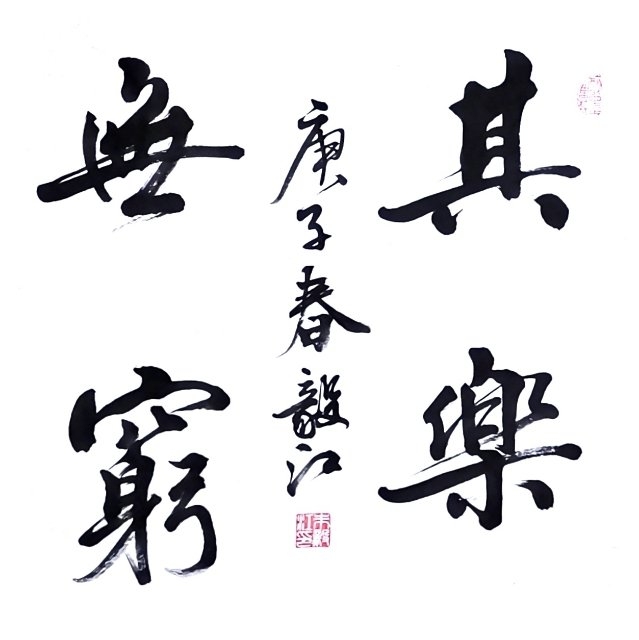 其樂
無窮
庚子春毅江